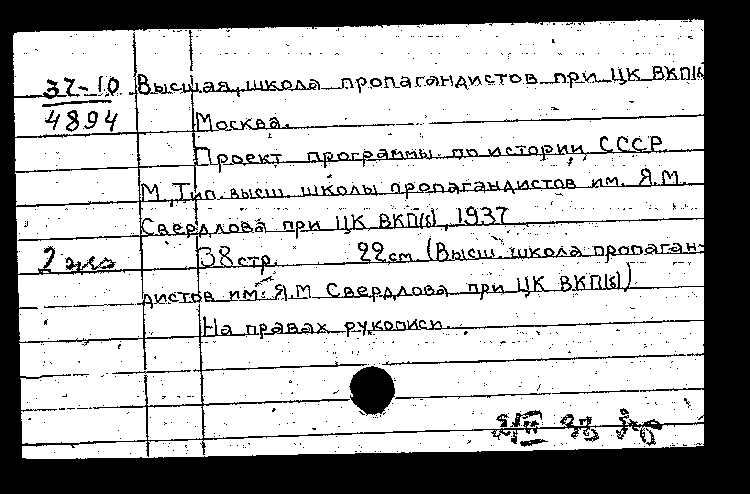 37-10 Высшая школа пропагандистов при ЦК ВКП(б
4894 Москва.
Проект программы по истории СССР.
М., Тип. высш. школы пропагандистов им. Я.М.
Свердлова при ЦК ВКП(б), 1937
2 экз 38 стр. 22 см (Высш. школа пропаган-
дистов им. Я.М Свердлова при ЦК ВКП(б))
На правах рукописи.